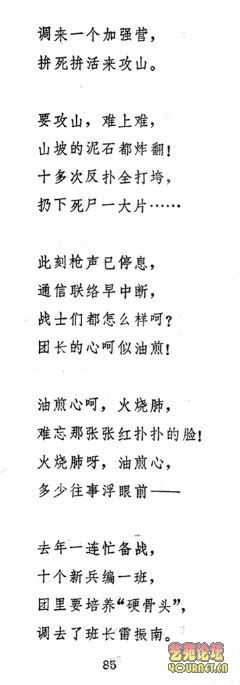 调来一个加强营，
拚死拚活来攻山。
要攻山，难上难，
山坡的泥石都炸翻！
十多次反扑全打垮，
扔下死尸一大片……
此刻枪声已停息，
通信联络早中断，
战士们都怎么样呵？
团长的心呵似油煎！
油煎心呵，火烧肺，
难忘那张张红扑扑的脸！
火烧肺呀，油煎心，
多少往事浮眼前——
去年一连忙备战，
十个新兵编一班，
团里要培养“硬骨头”，
调去了班长雷振南。
85
艺苑论坛
YOURNET.CN